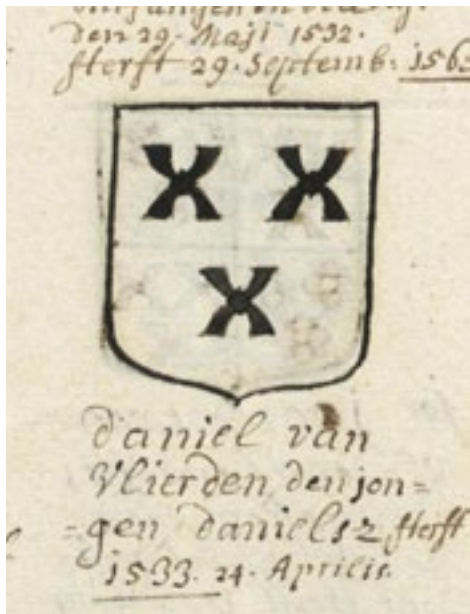 den 29. Maji 1532.
sterft 29. Septemb: 1563
daniel van
Vlierden den jon=
=gen danielsz sterft
1533. 24. Aprilis.